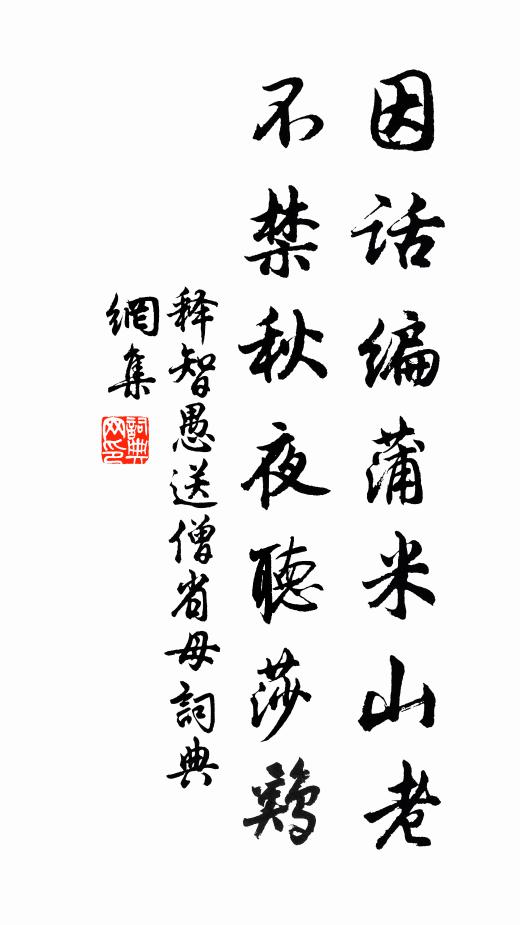 因话编蒲米山老
不禁秋夜聽莎鷄
释智愚送僧省母詞典
網集
詞典网印